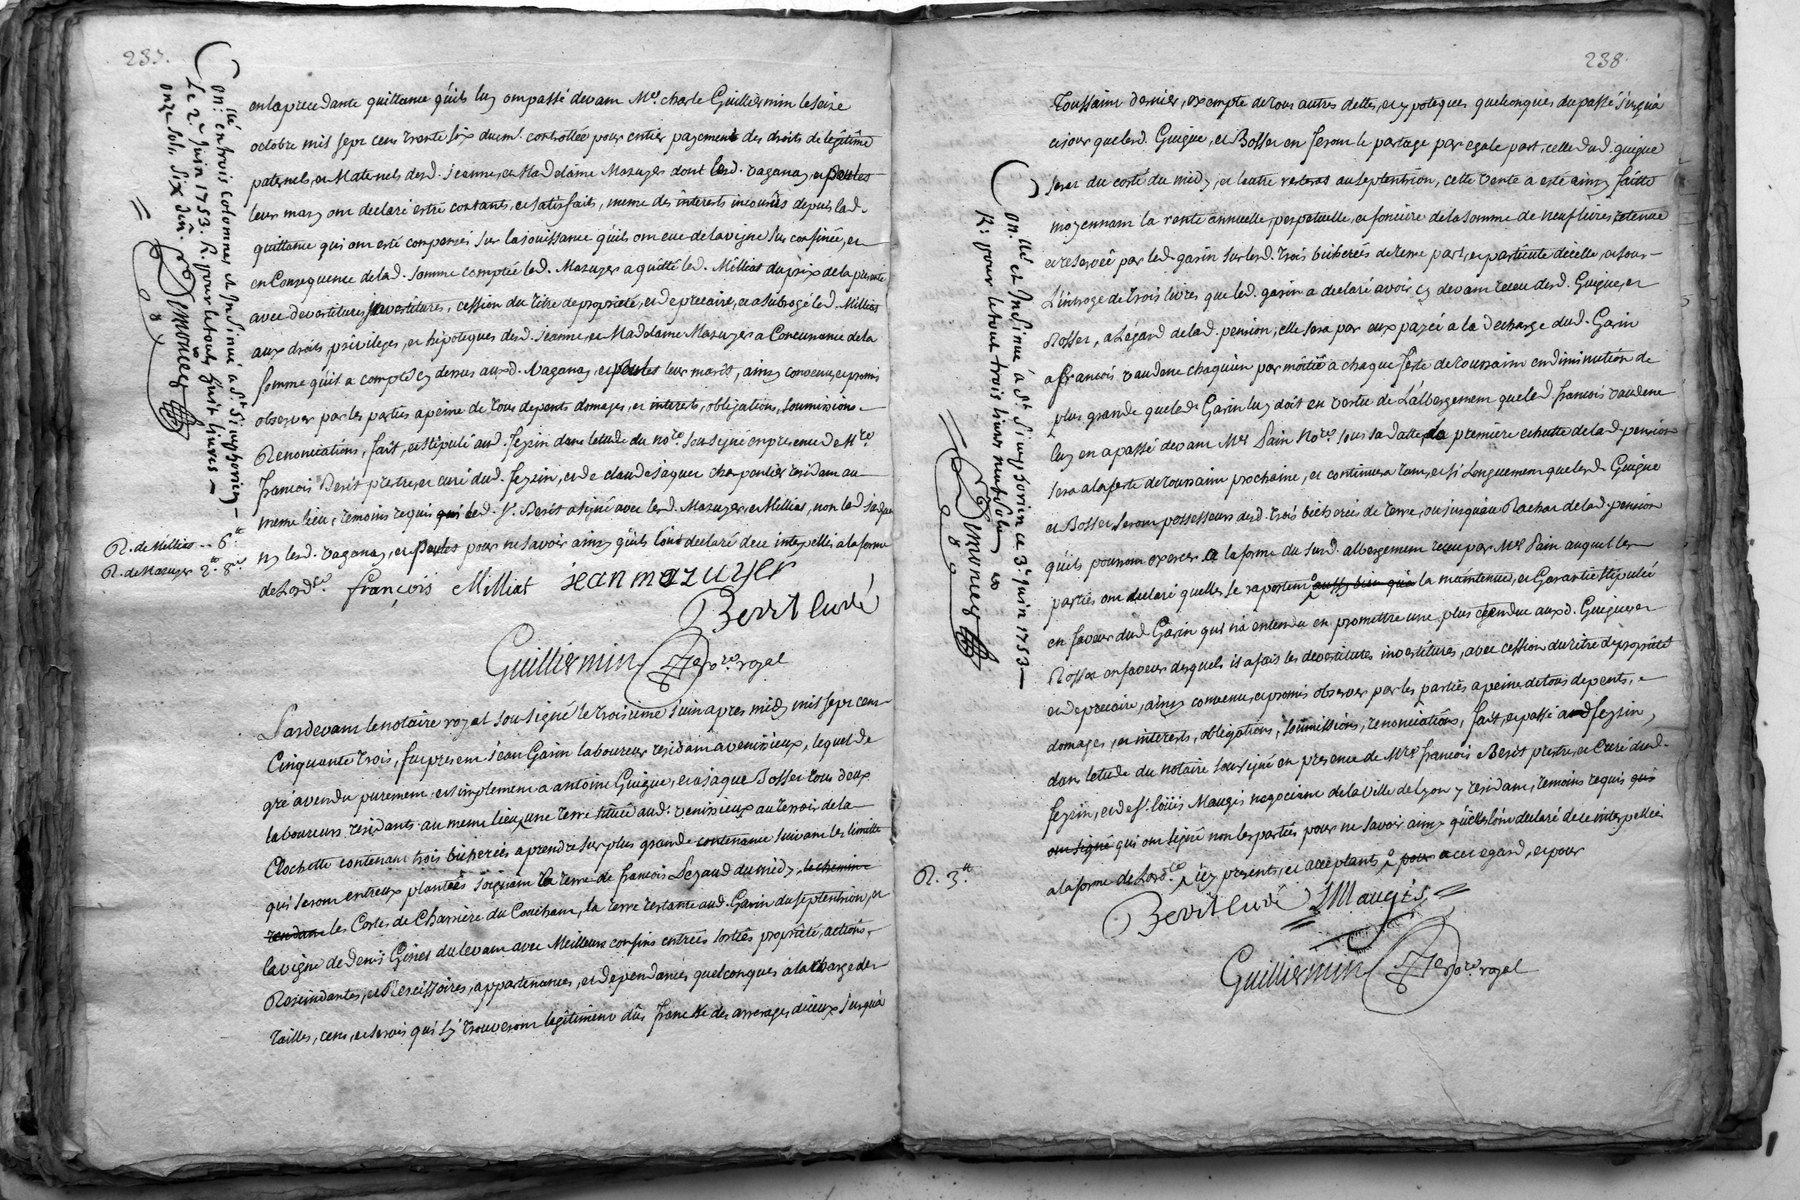 237.
Con:llé en trois colomnes et Insinué a St Simphorien
Le 2e Juin 1753. R. pour le tout huit livres
onze sols six dnr.
Simonet
enlaprecedante quittance quils luy ont passé devant Me. charle Guilliermin le seize
octobre mil sept cens trante six dûemt. controllée pour entier payement des droits de légitime
paternels, et Maternels desd. jeanne, et Madelaine Mazuyer dont lesd. vaganay, et poutes
leur mary ont declaré estre contants, et satisfaits, meme des intérests incourûs depuis lad.
quittance qui ont esté compensés sur la jouissance quils ont eue de la vigne sus confinée, et
en Consequence de lad. somme comptée led. Mazuyer a quitté led. Milliat du prix de la presente
avec devestitures, investitures, cession du titre de propriété, et de precaire, et a subrogé led. Milliat
aux droits, privileges, et hipoteques desd. jeanne, et Madelaine Mazuyer a Concurrance de la
somme quil a compté cy dessus auxd. vaganay, et poutes leur maris, ainsy convenu, et promis
observer par les parties a peine de tous depents domages, et interests, obligations, soumissions
Renonciations, fait, et stipulé aud. feyzin dans letude du nore. soussigné en presence de Mre.
françois Berit prestre, et curé dud. feyzin, et de claude jaquet charpentier residant au
meme lieu, temoins requis qui led. Sr. Berit a signé avec lesd. Mazuyer, et Milliat, non led. jaquet
ny lesd. vaganay, et poutes pour ne savoir ainsy quils lont declaré de ce interpellés a la forme
de Lordce.
R. de Milliat .. 6tt
R. de Mazuyer 2tt 8s
françois Milliat jean mazuyer
Berit curé
Guilliermin nore royal
Pardevant le notaire royal soussigné le troisieme juin apres midy mil sept cens
Cinquante trois, fut present jean Garin laboureur residant a venissieux, lequel de
gré a vendu purement et simplement a antoine Guigue, et a jaque Bosset tous deux
laboureurs residants au meme lieu, une terre située aud. venissieux au terroir de la
Clochette contenant trois bicherées a prendre sur plus grande contenance suivant les limittes
qui seront entreux plantées joignant la terre de françois Legaud du midy, le chemin
tendant les Cortes de Charriere du Couchant, la terre restante aud. Garin du septentrion, et
la vigne de denis Ginet du levant avec Meilleurs confins entrées sorties propriété, actions,
Rescindantes, et Rescissoires, appartenances, et dependances quelconques a la charge des
tailles, cens, et servis qui sy trouveront legitimement dûs franc &c des arrerages diceux jusqua
238.
Con.llé et Insinué à St Simphorien ce 3e juin 1753
R: pour le tout trois livres neuf sols
Simonet
toussaint dernier, exempte de tous autres dettes, et ypoteques quelconques du passé jusqua
cejour que lesd. Guigue, et Bosset en feront le partage par egale part, celle dud. guigue
sera du costé du midy, et lautre restera au septentrion, cette vente a esté ainsy faitte
moyennant la rente annuelle, perpetuelle, et fonciere de la somme de neuf livres retenue
et reservée par led. garin sur lesd. trois bicherées de terre part, et particule dicelle, et sous
L'introge de trois livres que led. garin a declaré avoir cy devant receu desd. Guigue, et
Bosset, a Légard de lad. pension, elle sera par eux payée a la decharge dud. Garin
a françois vaudene chaquun par moitiié a chaque feste de toussaint en diminution de
plus grande que led. Garin luy doit en vertu de L'albergement que led. françois vaudene
luy en a passé devant Me Pain nore. sous sa datte, la premiere echutte de lad. pension
sera a la feste de toussaint prochaine, et continuera tant, et si longuement que lesd. Guigue
et Bosset seront possesseurs desd. trois bicherées de terre, ou jusquau Rachat de lad. pension
quils pourront exercer a la forme du susd. albergement receu par Me Pain auquel les
parties ont declaré quelles se raportent aussy bien qua la maintenue, et Garantie stipulée
en faveur dud. Garin qui n'a entendu en promettre une plus etendue auxd. Guigue, et
Bosset en faveur desquels il a fait les devestitures investitures, avec cession du titre de propriété
et de precaire, ainsy convenu, et promis observer par les parties a peine de tous depents,
domages, et interests, obligations, soumissions, renonciations, fait, et passé aud feyzin,
dans letude du notaire soussigné en presence de Mre françois Berit prestre, et Curé dud.
feyzin, et de sr. loüis Maugis negociant de la ville de Lyon y residant, temoins requis qui
ont signé qui ont signé non les parties pour ne savoir ainsy quelles lont declaré de ce interpellées
a la forme de Lordce. icy presents, et acceptants pour a cet egard, et pour
R. 3tt.
Berit curé LMaugis
Guilliermin nore royal